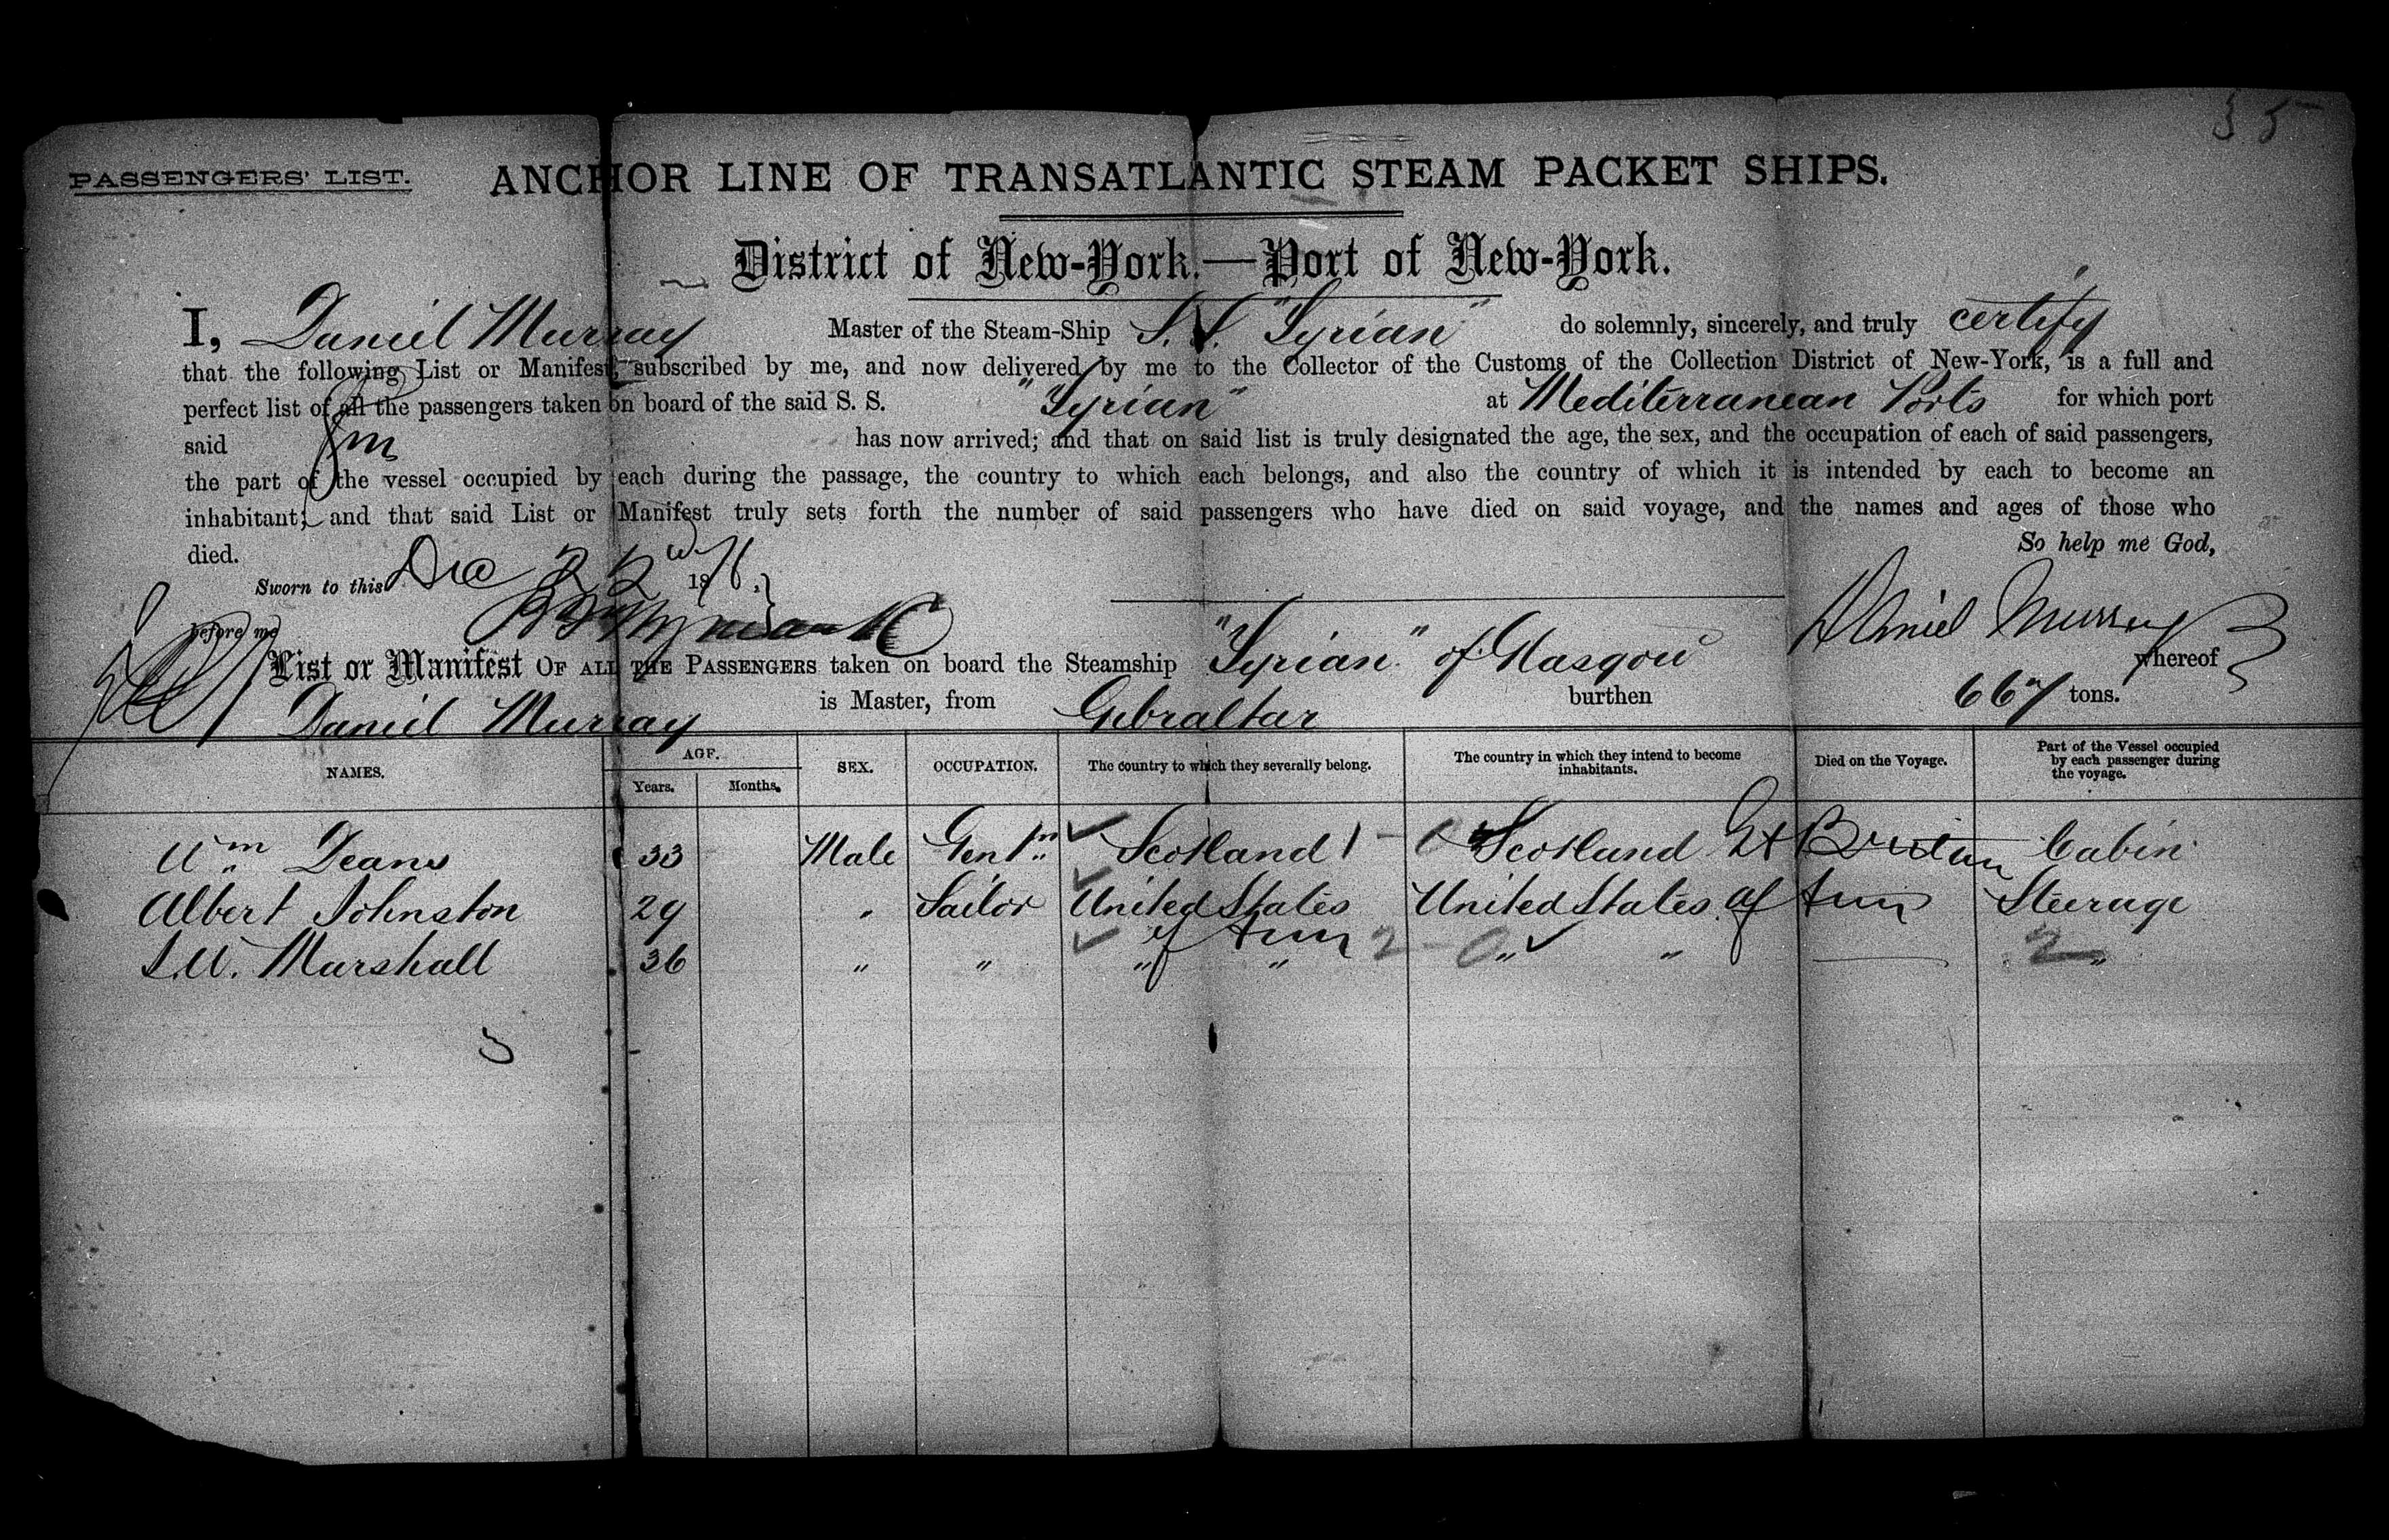 35
PASSENGERS' LIST. ANCHOR LINE OF TRANSATLANTIC STEAM PACKET SHIPS.
District of New-York.—Port of New-York.
I, Daniel Murray Master of the Steam-Ship S.S. "Syrian" do solemnly, sincerely, and truly certify
that the following List or Manifest, subscribed by me, and now delivered by me to the Collector of the Customs of the Collection District of New-York, is a full and
perfect list of all the passengers taken on board of the said S. S. "Syrian" at Mediterranean Ports for which port
said has now arrived; and that on said list is truly designated the age, the sex, and the occupation of each of said passengers,
the part of the vessel occupied by each during the passage, the country to which each belongs, and also the country of which it is intended by each to become an
inhabitant; and that said List or Manifest truly sets forth the number of said passengers who have died on said voyage, and the names and ages of those who
died. So help me God,
Sworn to this Dec 22d 1876.
before me Daniel Murray
List or Manifest OF ALL THE PASSENGERS taken on board the Steamship "Syrian" of Glasgow whereof
Daniel Murray is Master, from Gibraltar burthen 667 tons.
NAMES. AGE. Years. Months. SEX. OCCUPATION. The country to which they severally belong. The country in which they intend to become inhabitants. Died on the Voyage. Part of the Vessel occupied by each passenger during the voyage.
Wm Deans 33 Male Gentn Scotland 1 - Scotland Gt Britain Cabin
Albert Johnston 29 " Sailor United States of Am United States of Am Steerage
J.W. Marshall 36 " " " " 2 - 0 " " 2 "
3